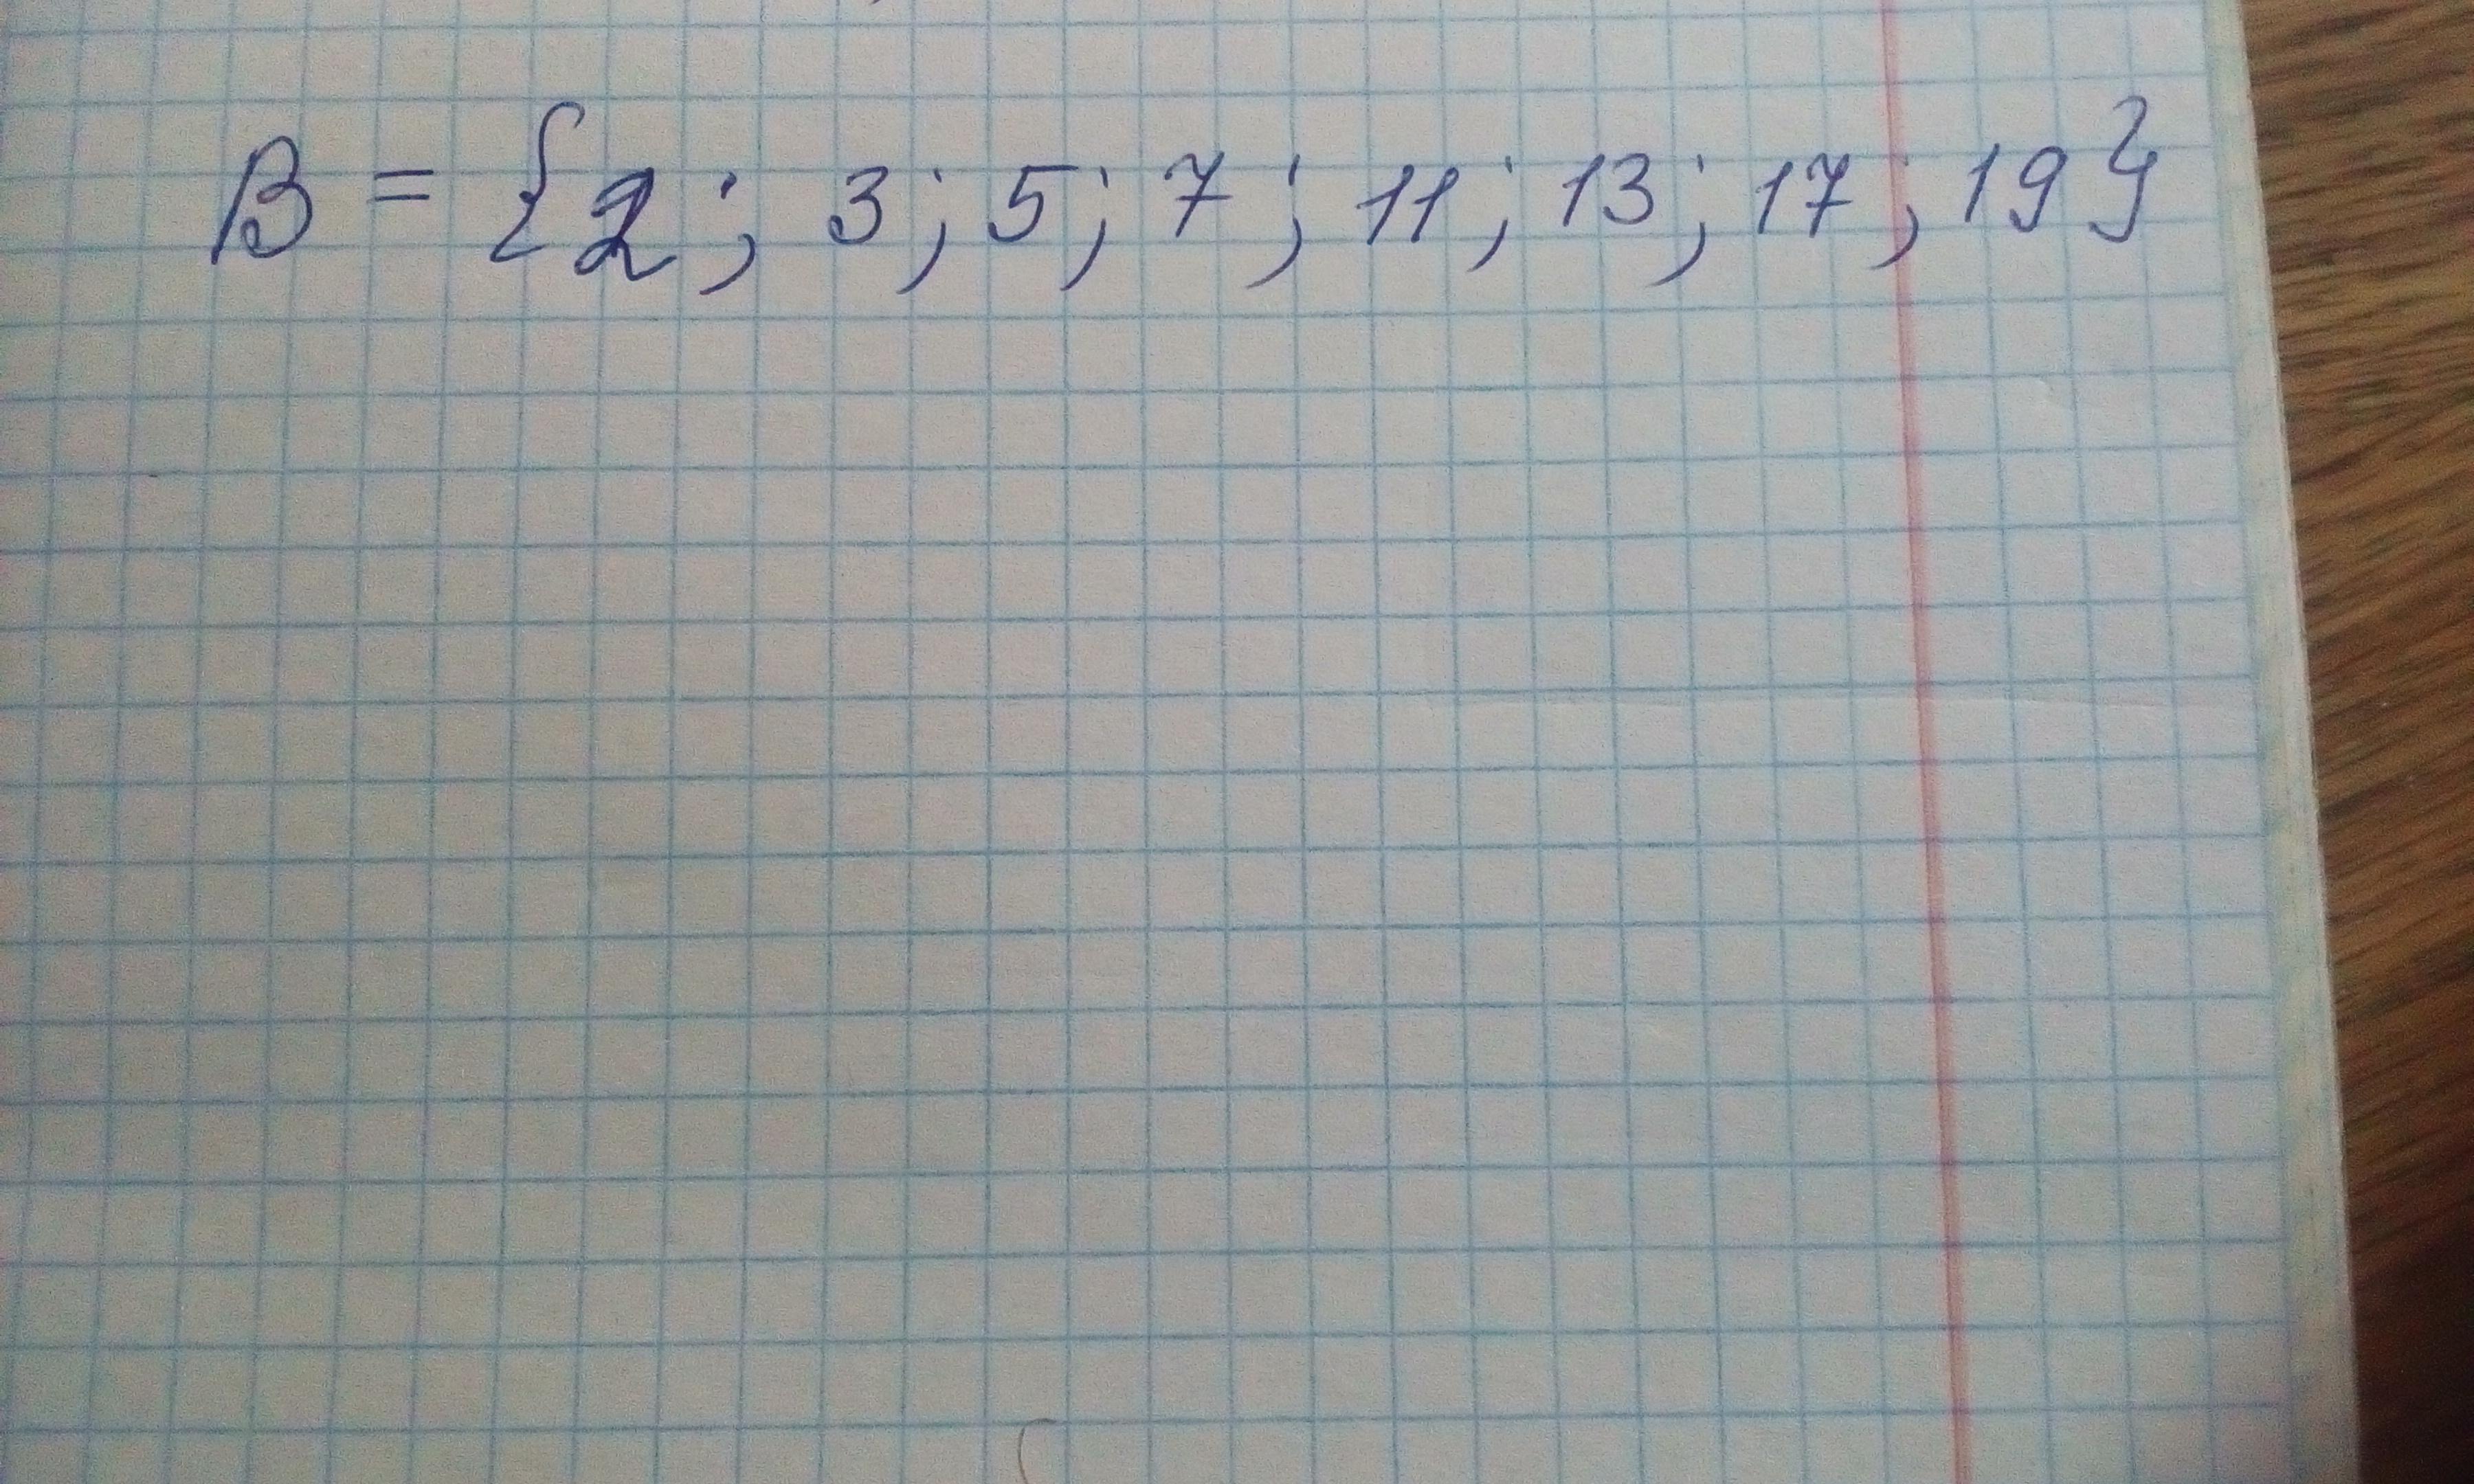 B = {2; 3; 5; 7; 11; 13; 17; 19}